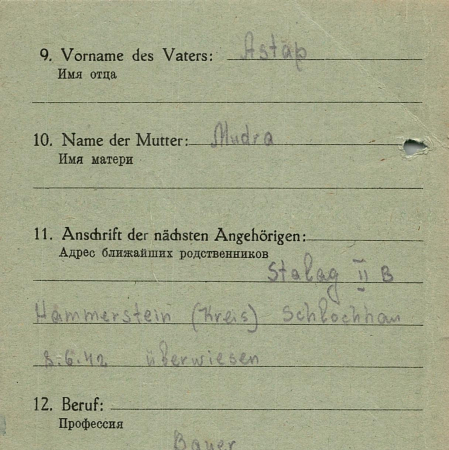 9. Vorname des Vaters: Astap
Имя отца
10. Name der Mutter: Mudra
Имя матери
11. Anschrift der nächsten Angehörigen:
Адрес ближайших родственников
Stalag II B
Hammerstein (Kreis) Schlochhau
8.6.42 überwiesen
12. Beruf:
Профессия
Bauer